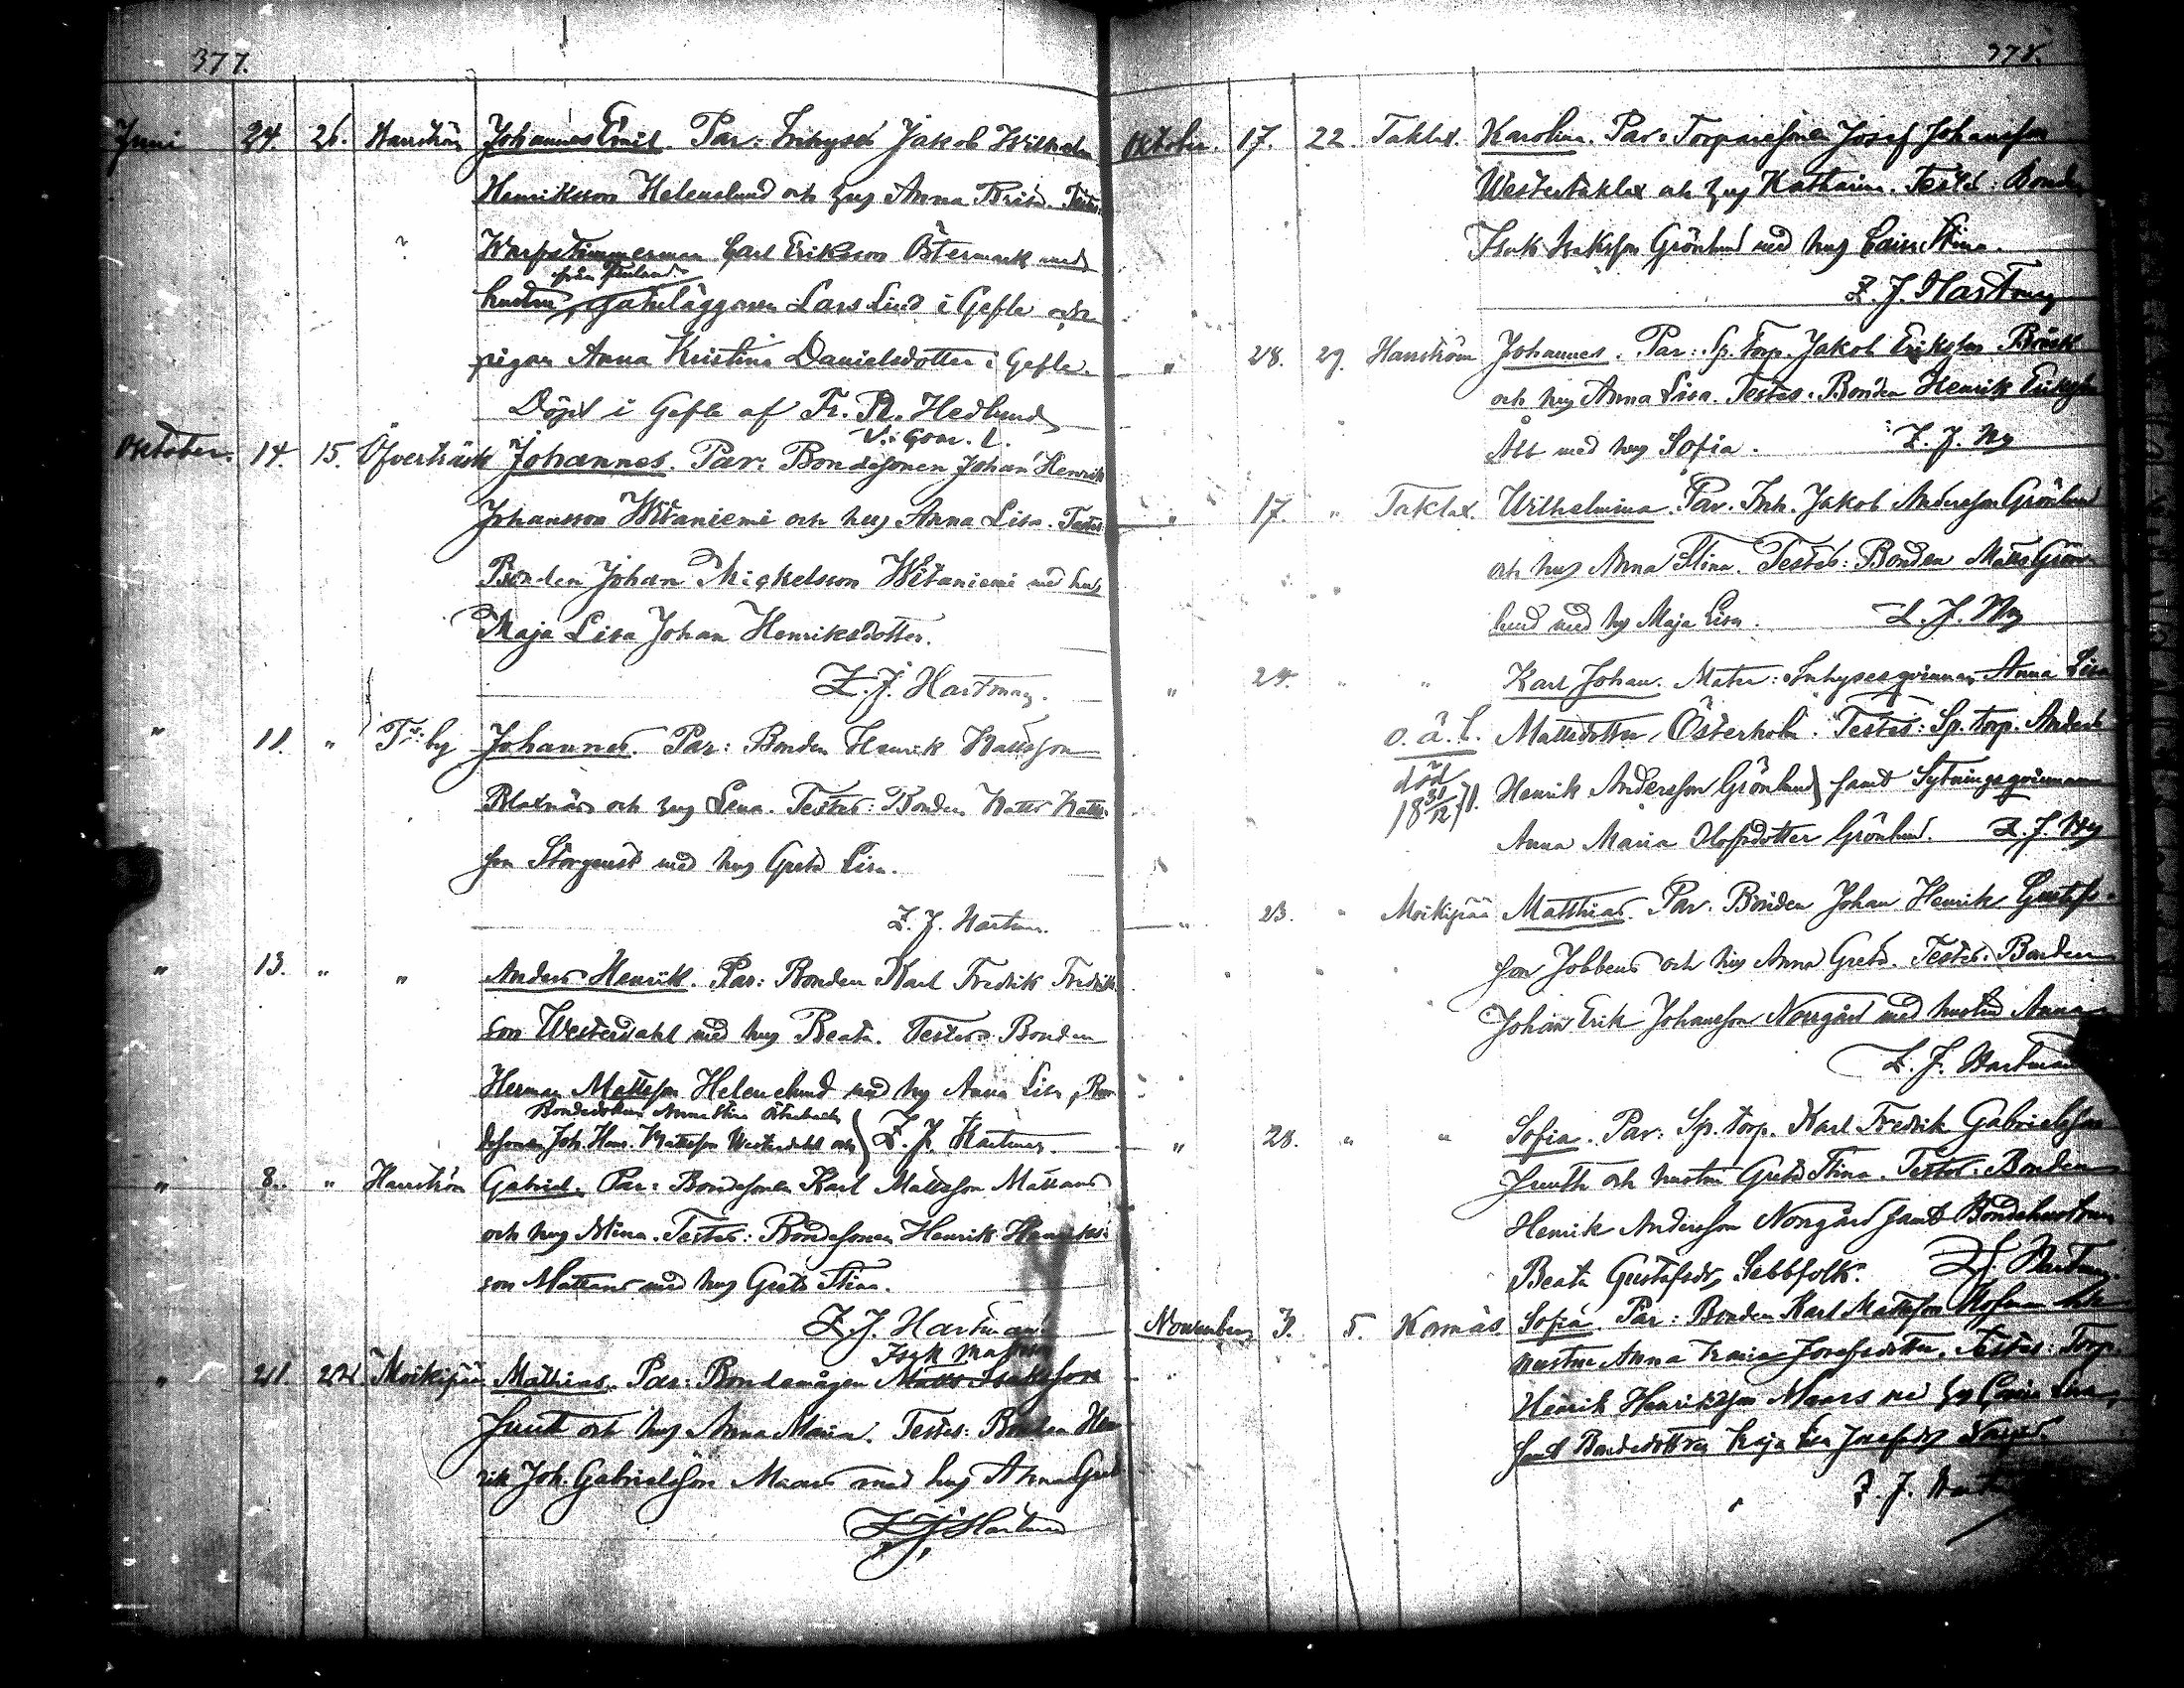 377.
Juni 24. 26. Hanström Johannes Emil. Par: Inhyses Jakob Wilhelm
Henriksson Helenelund och hus Anna Brita. Testes:
Warfstimmerman Carl Eriksson Östermark med
från Finland
hustru, gatuläggaren Lars Lind i Gefle och
pigan Anna Kristina Danielsdotter i Gefle.
Döpt i Gefle af Fr. R. Hedlund
V. Com. l.
Oktober. 14. 15. Öfverträsk Johannes. Par: Bondesonen Johan Henrik
Johansson Witaniemi och hus Anna Lisa. Testes
Bonden Johan Mickelsson Witaniemi med hus
Maja Lisa Johan Henriksdotter.
Z. J. Hartman.
" 11. " T:by Johannes. Par: Bonden Henrik Mattsson
Blaxnäs och hus Lena. Testes: Bonden Matts Matts-
son Storgeust med hus Greta Lisa.
Z. J. Hartman.
" 13. " " Anders Henrik. Par: Bonden Karl Fredrik Fredrik
son Westerdahl med hus Beata. Testes: Bonden
Herman Mattsson Helenelund med hus Anna Lisa, Bon-
Bondedottren Anna Stina
desonen Joh. Henr. Mattsson Westerdahl och Z. J. Hartman.
" 8. " Hanström Gabriel. Par: Bondesonen Karl Mattsson Mattans
och hus Mina. Testes: Bondesonen Henrik Henriks-
son Mattans med hus Greta Stina.
Z. J. Hartman
Isak Mattsson
" 21. 22 Moikipää Mathias. Par: Bondemågen Matts Isaksson
Juuth och hus Anna Maria. Testes: Bonden Hen
rik Joh. Gabrielsson Maars med hus Anna Greta
Z. J. Hartman
378.
Oktober. 17. 22. Taklax. Karolina. Par: Torparesonen Josef Johansson
Westertaklax och hus Katharina. Testes: Bonden
Isak Isaksson Grönlund med hus Caisa Stina.
Z. J. Hartman
" 28. 29. Hanström Johannes. Par: Sp. torp. Jakob Eriksson Bäck
och hus Anna Lisa. Testes: Bonden Henrik Eriksson
Åbb med hus Sofia. Z. J. Hn
" 17. " Taklax. Wilhelmina. Par. Inh. Jakob Andersson Grönlund
och hus Anna Stina. Testes: Bonden Matts Grön-
lund med hus Maja Lisa. Z. J. Hn
" 24. " " Karl Johan. Mater: Inhysesqvinnan Anna Lisa
o. ä. l. Mattsdotter Österholm. Testes: Sp. torp. Anders
död Henrik Andersson Grönlund samt Sytningsqvinnan
18 31/12 71. Anna Maria Olofsdotter Grönlund. Z. J. Hn
" 23. " Moikipää Matthias. Par. Bonden Johan Henrik Gustafs-
son Jobbens och hus Anna Greta. Testes: Bonden
Johan Erik Johansson Norrgård med hustru Anna
Z. J. Hartman
" 28. " " Sofia. Par: Sp. torp. Karl Fredrik Gabrielsson
Juuth och hustru Greta Stina. Testes: Bonden
Henrik Andersson Norrgård samt Bondehustrun
Beata Gustafsdr Sebbfolk. Z. J. Hartman.
November 3. 5. Kornäs Sofia. Par: Bonden Karl Mattsson Hofman och
hustru Anna Maria Josefsdotter. Testes: Torp.
Henrik Henriksson Maars med hus Caisa Lisa,
samt Bondedottren Maja Lisa Josefsdr
Z. J. Hartman